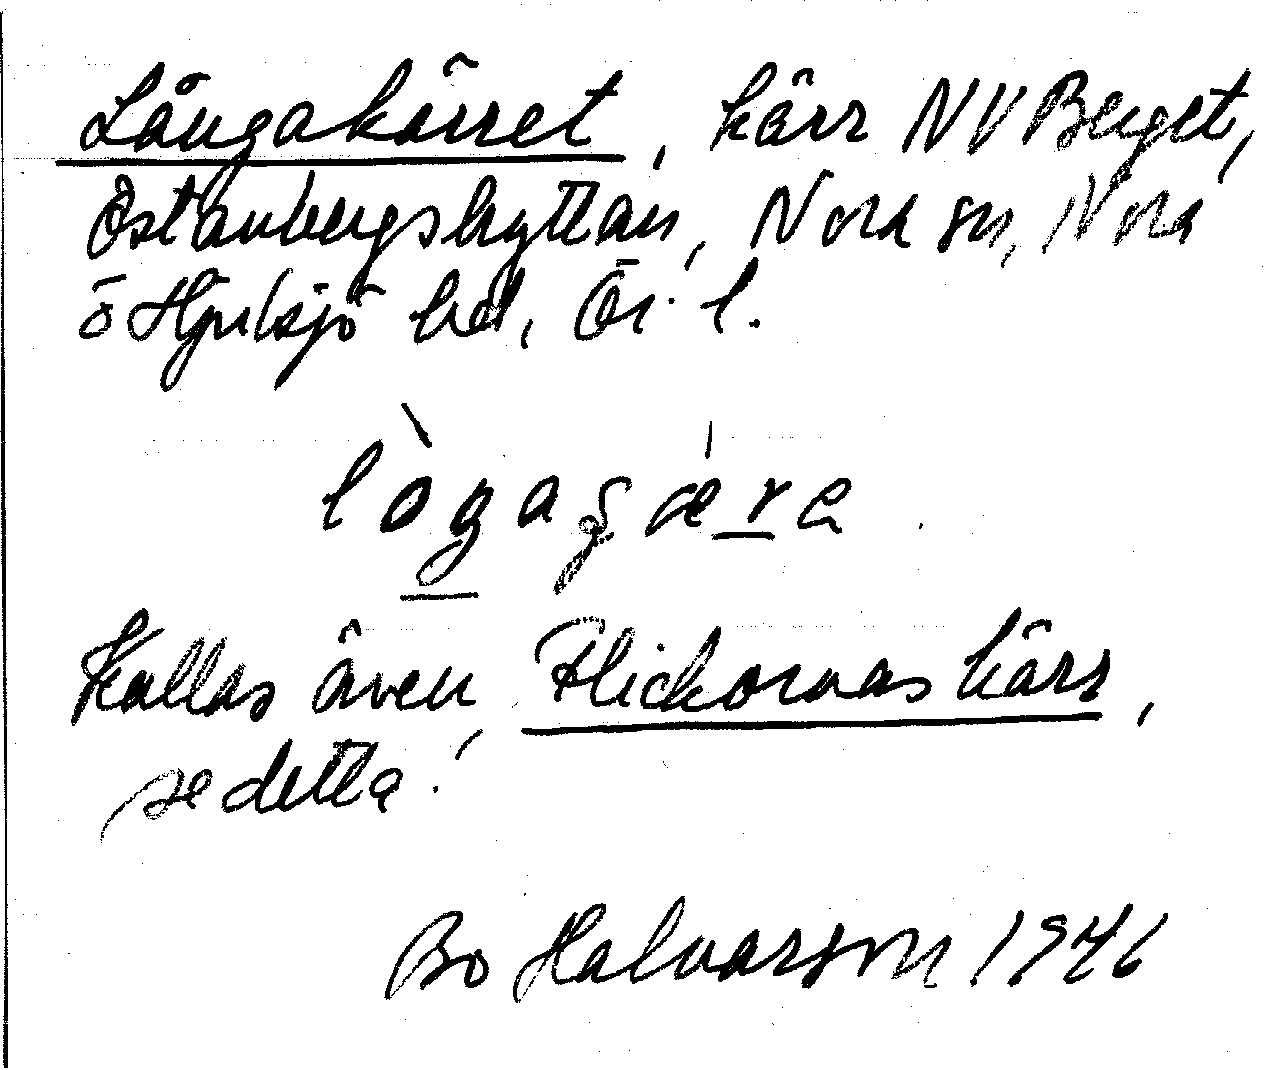 Långakärret, kärr NV Berget,
Östanbergshyttan, Nora sn, Nora
o Hjulsjö hd, Ör. l.
Kallas även Flickornas kärr,
se detta!
Bo Halvarson 1946